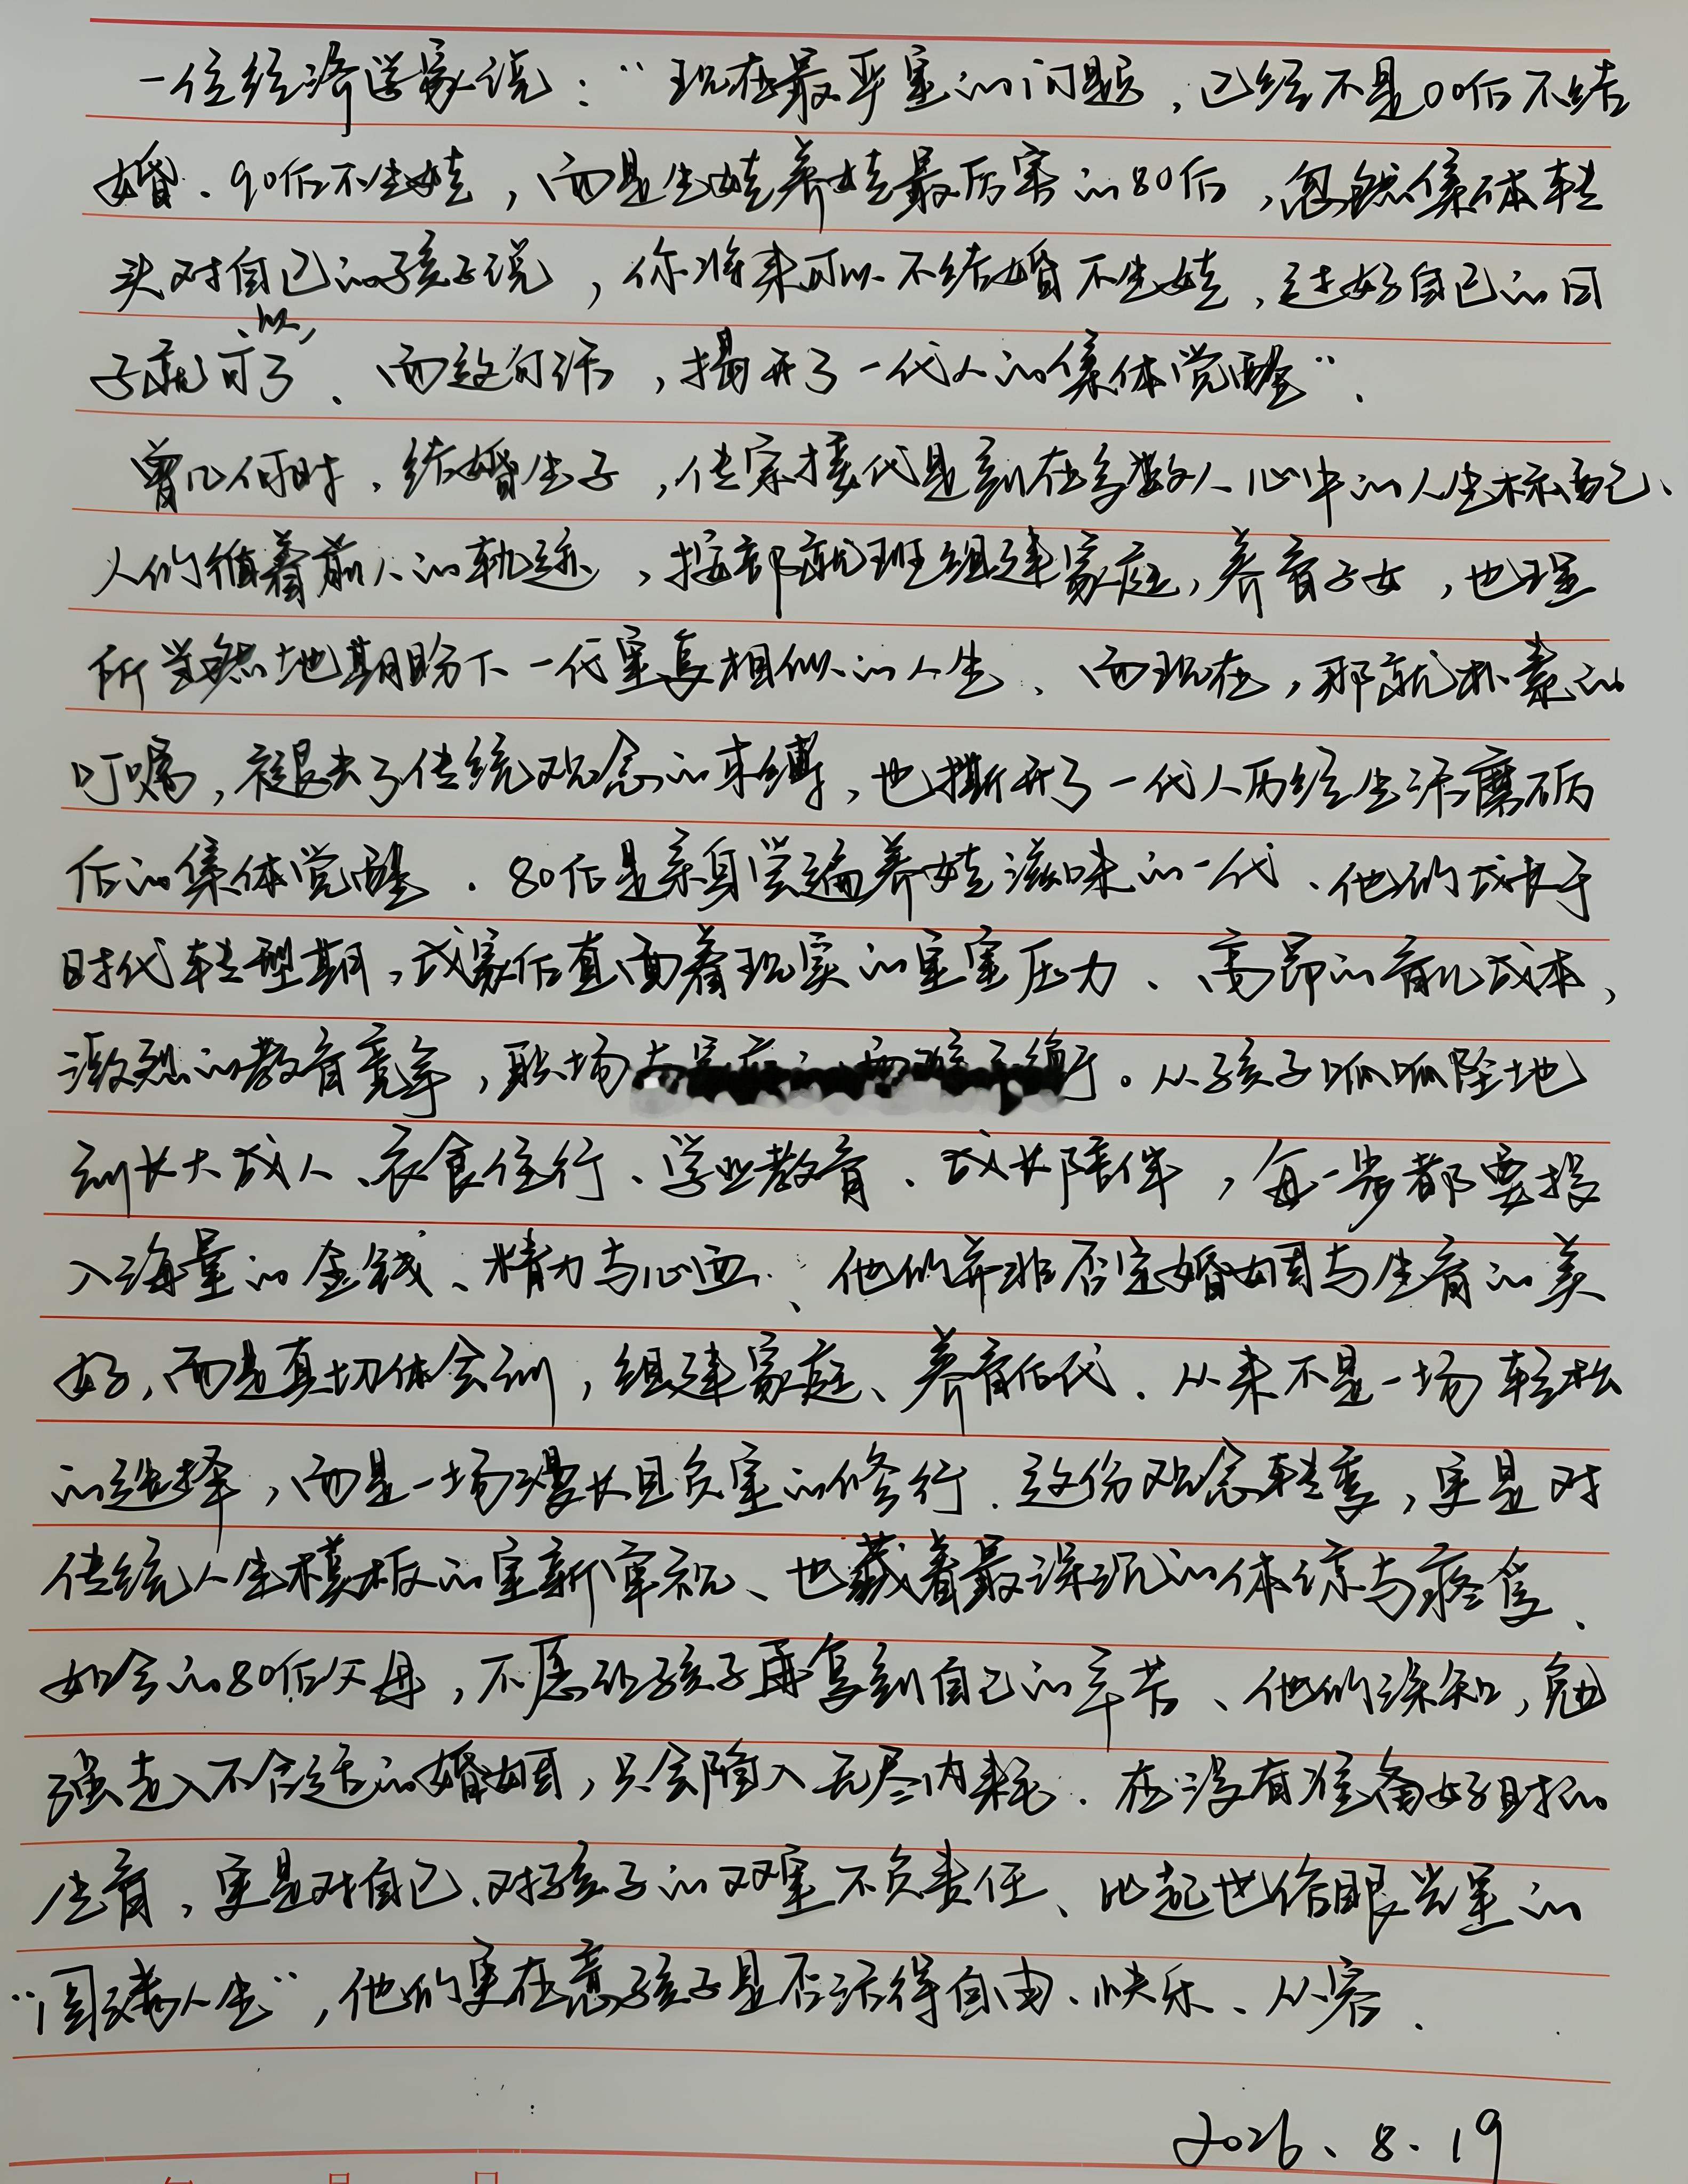 一位经济学家说：“现在最严重的问题，已经不是00后不结
婚、90后不生娃，而是生娃养娃最厉害的80后，忽然集体转
头对自己的孩子说，你将来可以不结婚不生娃，过好自己的日
子就可以了、而这句话，揭开了一代人的集体觉醒”.
曾几何时，结婚生子，传宗接代是刻在多数人心中的人生标配、
人们循着前人的轨迹，按部就班组建家庭，养育子女，也理
所当然地期盼下一代重复相似的人生、而现在，那就朴素的
叮嘱，褪去了传统观念的束缚，也撕开了一代人历经生活磨砺
后的集体觉醒．80后是亲身尝遍养娃滋味的一代、他们成长于
时代转型期，成家后直面着现实的重重压力、高昂的育儿成本、
激烈的教育竞争，职场。从孩子呱呱坠地
到长大成人、衣食住行、学业教育、成长陪伴，每一步都要投
入海量的金钱、精力与心血、他们并非否定婚姻与生育的美
好，而是真切体会到，组建家庭、养育后代、从来不是一场轻松
的选择，而是一场漫长且负重的修行．这份观念转变，更是对
传统人生模板的重新审视、也藏着最深沉的体谅与疼惜、
如今的80后父母，不愿让孩子再复刻自己的辛苦、他们深知，勉
强走入不合适的婚姻，只会陷入无尽内耗．在没有准备好时的
生育，更是对自己、对孩子的双重不负责任、比起世俗眼光里的
“圆满人生”，他们更在意孩子是否活得自由、快乐、从容．
2026、8.19
年 月 日